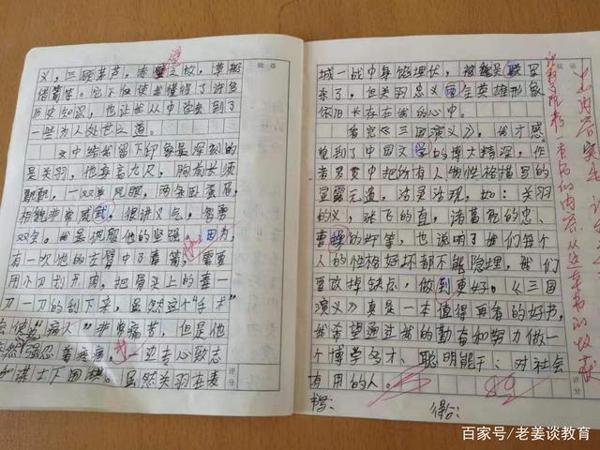 义，三顾茅庐，赤壁之战，草船
借箭等。它不仅使我懂得了许多
历史知识，也让我从中还学到了
一些为人处世之道。
文中给我留下印象最深刻的
是关羽，他身高九尺，胸前长须
飘飘，一双单凤眼，两条卧蚕眉，
相貌非常威武，很讲义气，智勇
双全。我最佩服他的坚强，因为
有一次他的左臂中了毒箭，需要
用小刀划开肉，把骨头上的毒一
刀一刀的刮下来，虽然这个“手术”
会使“病人”非常痛苦，但是他
强忍着疼痛，一边专心致志
和谋士下围棋。虽然关羽在麦
城一战中身陷埋伏，被
杀了，但关羽忠义两全英雄形象
依旧长存在我的心中。
看完《三国演义》，我才感
觉到了中国文学的博大精深，作
者罗贯中把所有人物性格描写的
淋漓尽致，活灵活现，如：关羽
的义，张飞的直，诸葛亮的忠、
曹操的奸等，也说明了我们每个
人的性格好坏都不能隐埋，我们
要改掉缺点，做到更好。《三国
演义》真是一本值得再看的好书，
我希望通过我的勤奋和努力做一
个博学多才、聪明能干、对社会
有用的人。
书写： 得分：
百家号/老姜谈教育